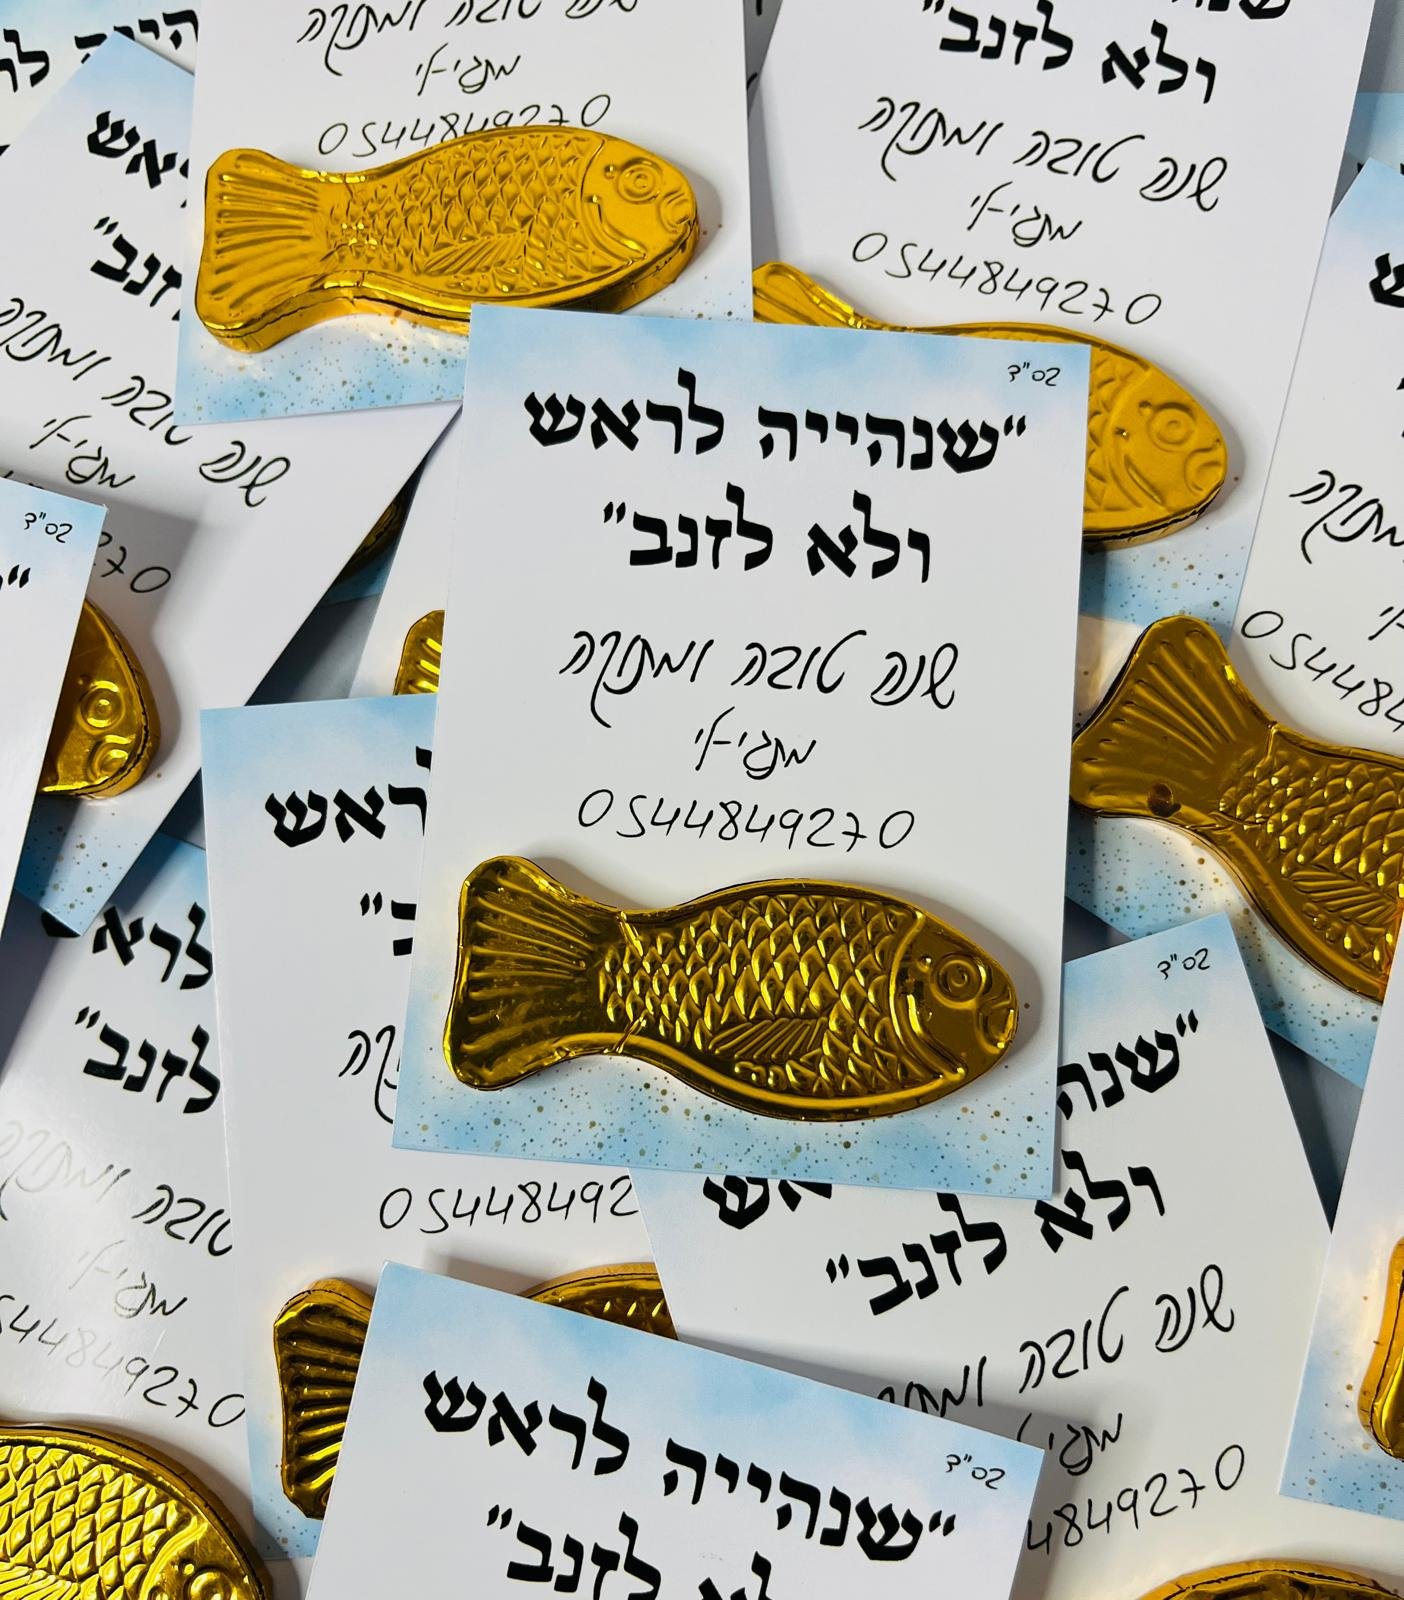 בס"ד
"שנהייה לראש
ולא לזנב"
שנה טובה ומתוקה
0544849270